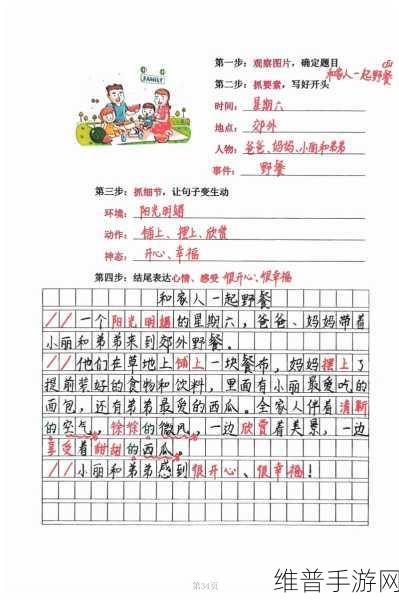 FAMILY
第一步：观察图片，确定题目
和家人一起野餐
第二步：抓要素，写好开头
时间：星期六
地点：郊外
人物：爸爸、妈妈、小丽和弟弟
事件：野餐
第三步：抓细节，让句子变生动
环境：阳光明媚
动作：铺上、摆上、欣赏
神态：开心、幸福
第四步：结尾表达心情、感受 很开心、很幸福
和家人一起野餐
//一个阳光明媚的星期六，爸爸、妈妈带着
小丽和弟弟来到郊外野餐。
//他们在草地上铺上一块餐布，妈妈摆上了
提前装好的食物和饮料，里面有小丽最爱吃的
面包，还有弟弟最爱的西瓜。全家人伴着清新
的空气，徐徐的微风，一边欣赏着美景，一边
享受着甜甜的西瓜。
//小丽和弟弟感到很开心、很幸福！
第34页
维普手游网